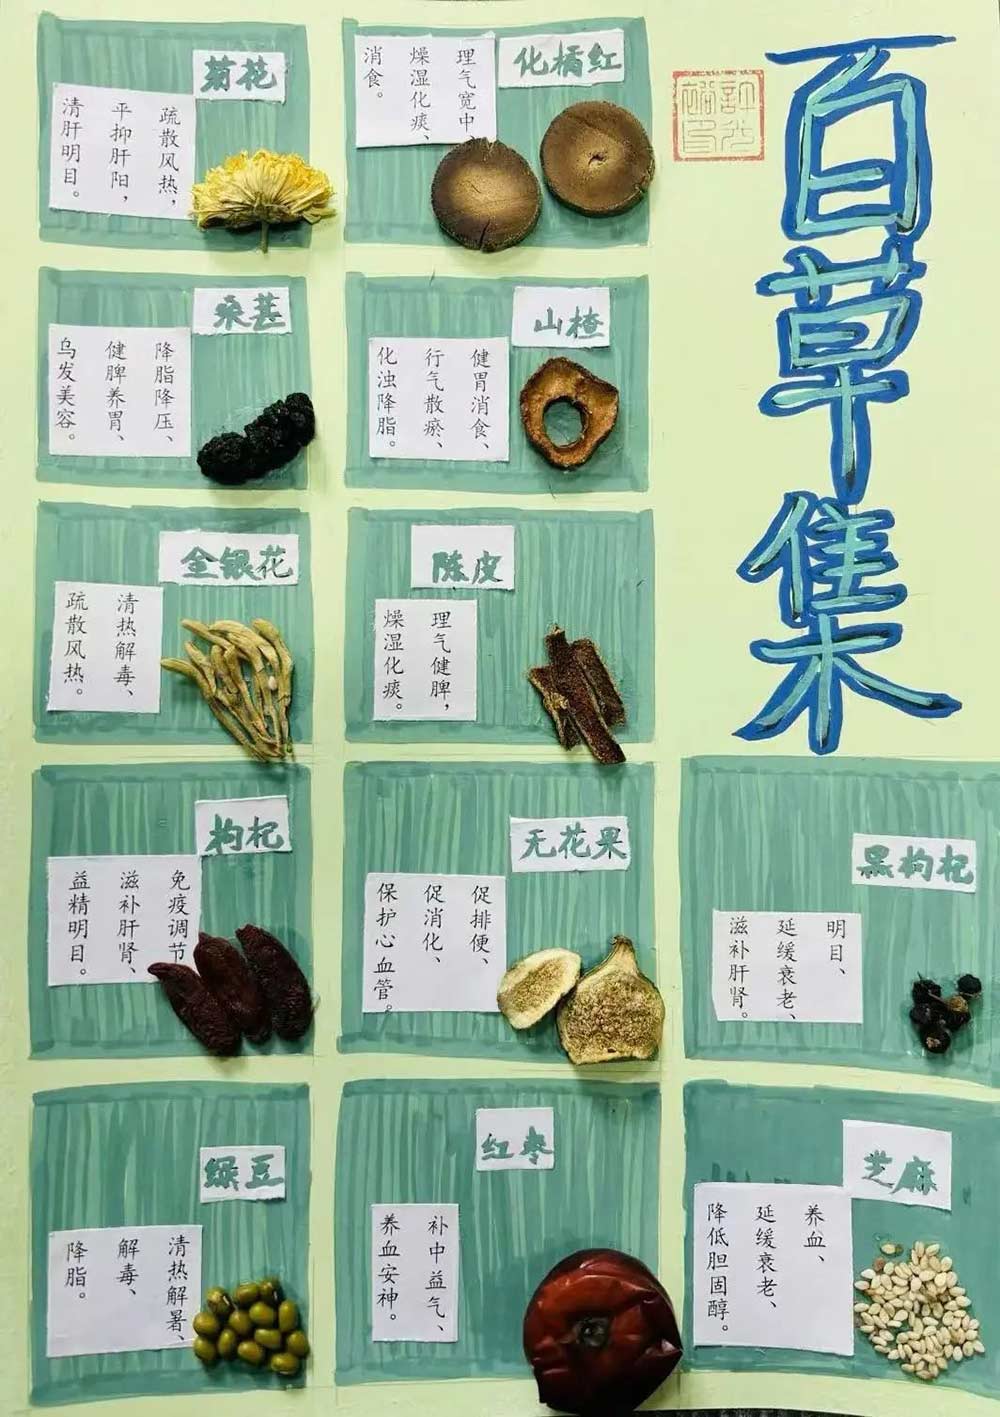 百草集
菊花
疏散风热，
平抑肝阳，
清肝明目。
化橘红
理气宽中、
燥湿化痰、
消食。
桑葚
降脂降压、
健脾养胃、
乌发美容。
山楂
健胃消食、
行气散瘀、
化浊降脂。
金银花
清热解毒、
疏散风热。
陈皮
理气健脾，
燥湿化痰。
枸杞
免疫调节
滋补肝肾、
益精明目。
无花果
促排便、
促消化、
保护心血管。
黑枸杞
明目、
延缓衰老、
滋补肝肾。
绿豆
清热解暑、
解毒、
降脂。
红枣
补中益气、
养血安神。
芝麻
养血、
延缓衰老、
降低胆固醇。